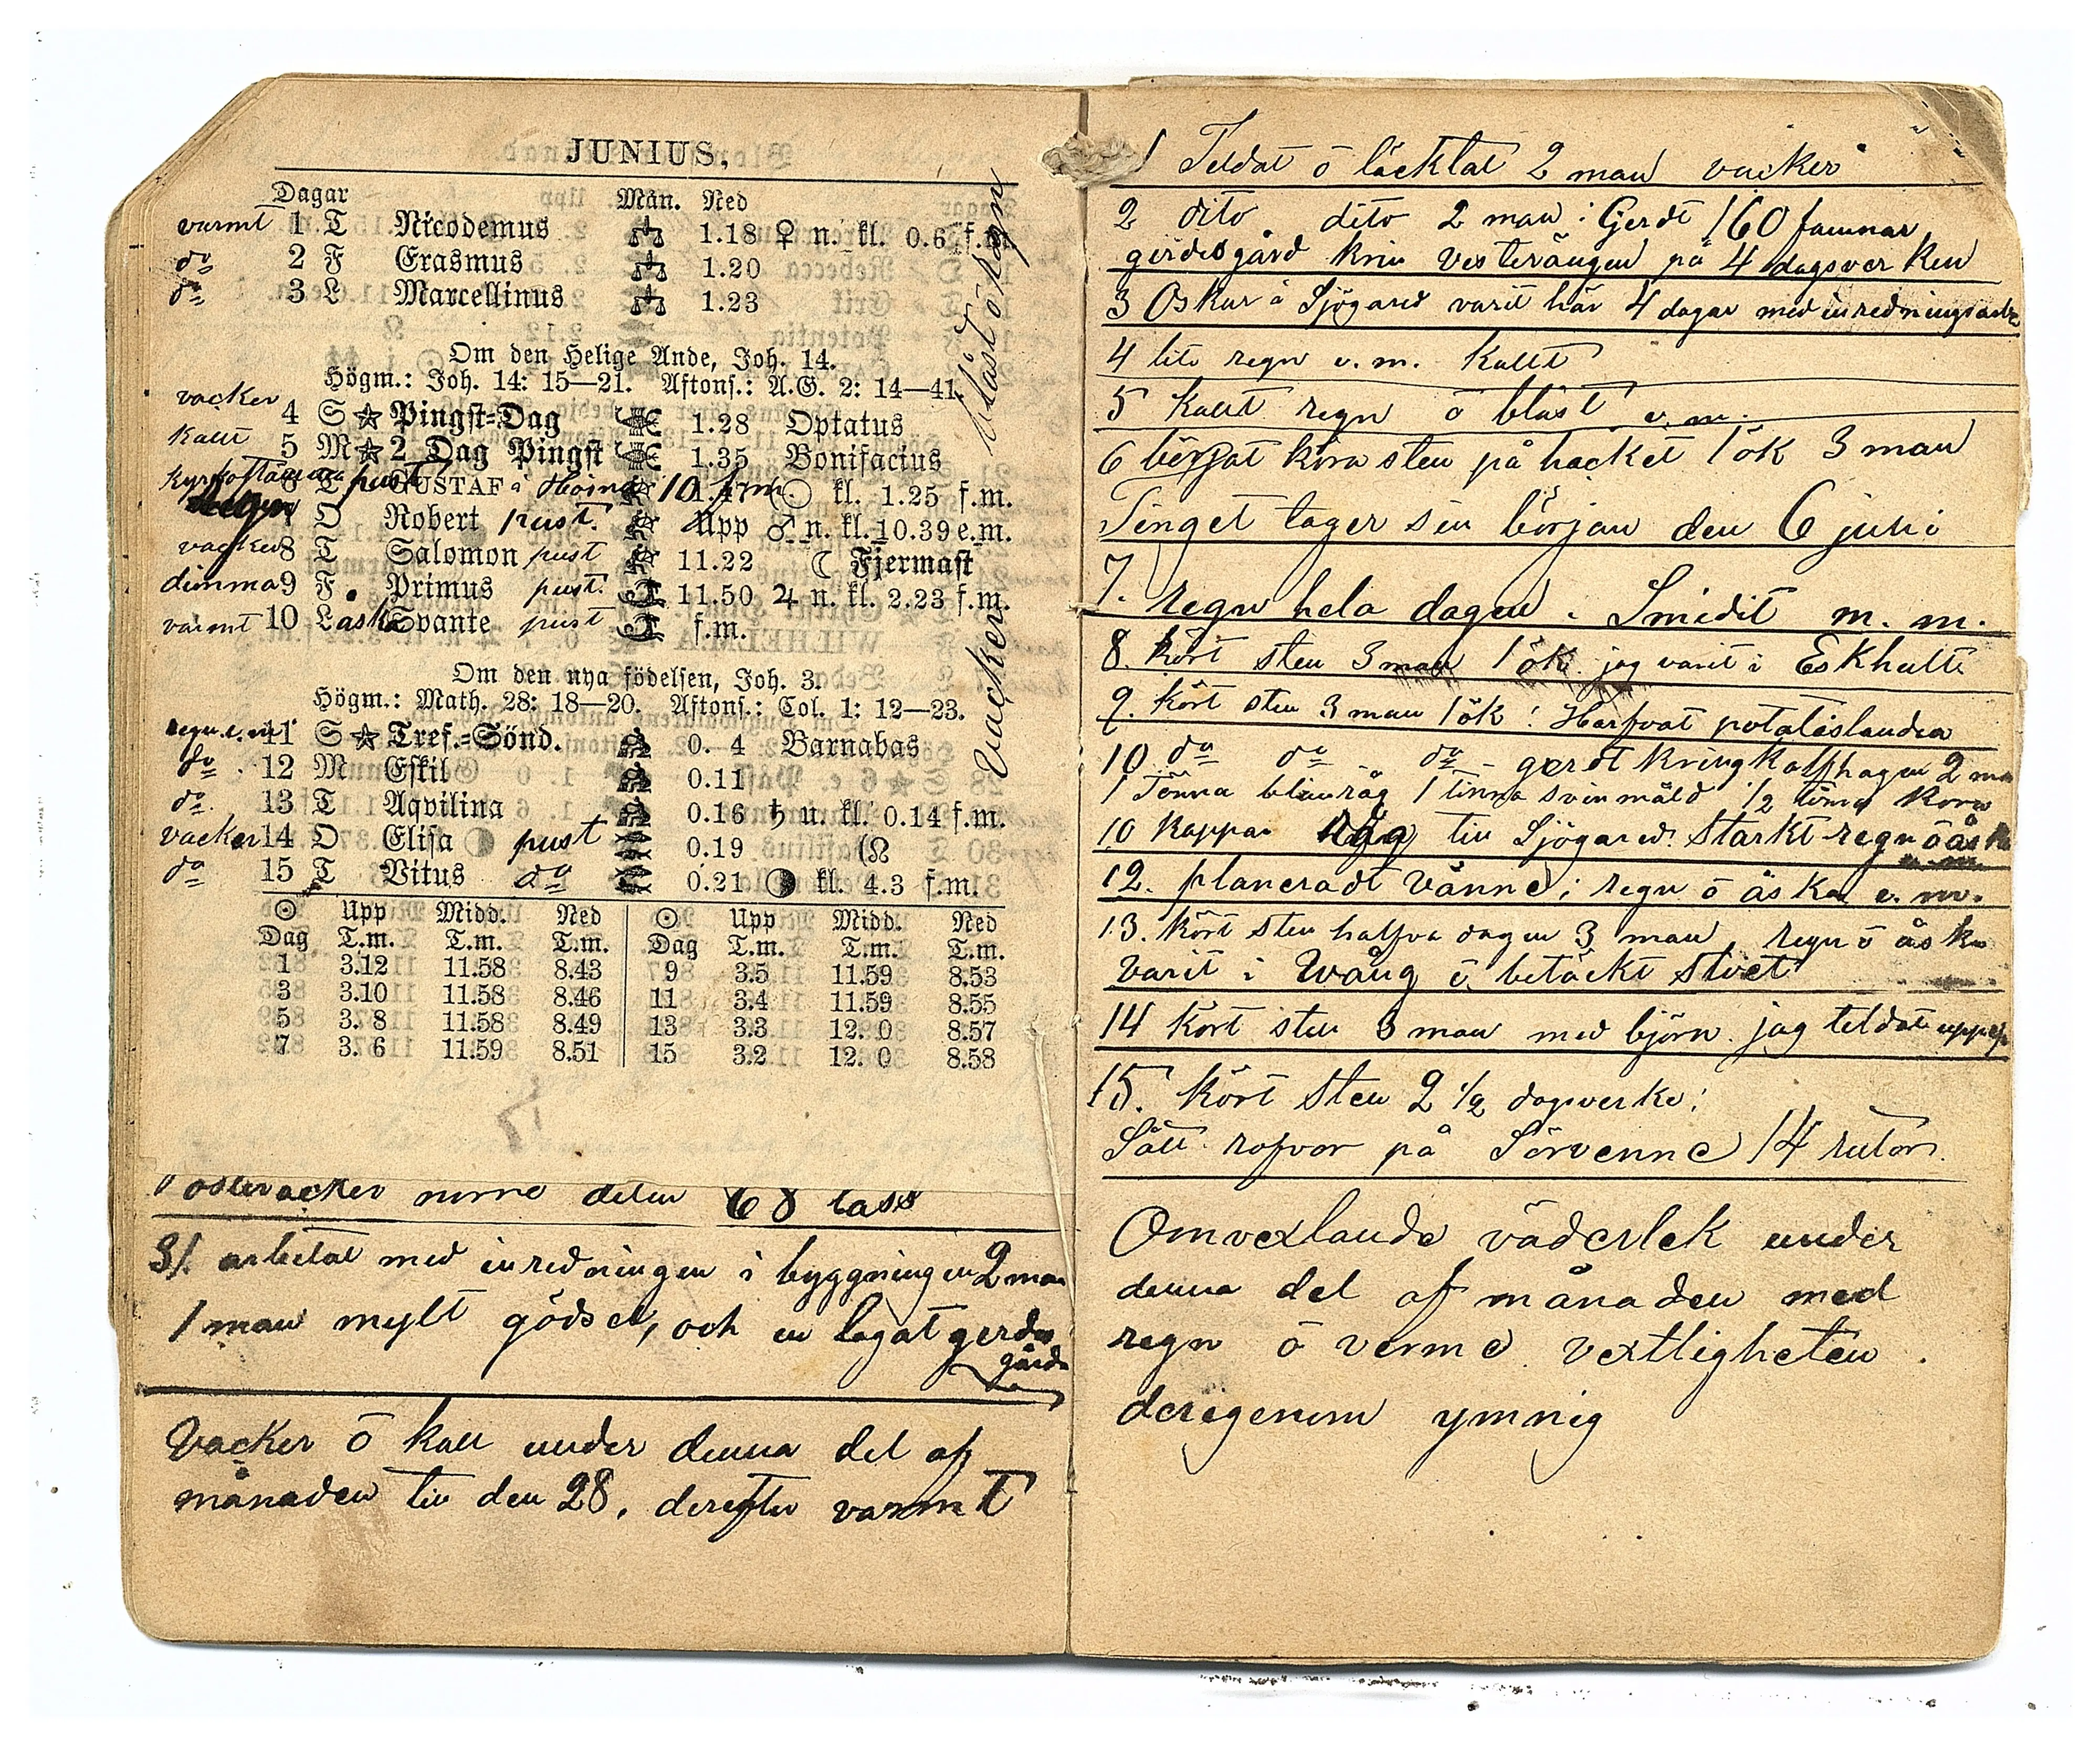 JUNIUS,
Dagar Mån. Ned
varmt 1 T Nicodemus 1.18 ♀ n. kl. 0.6 f.m.
do 2 F Erasmus 1.20
do 3 L Marcellinus 1.23
Blåst ö Regn
Om den Helige Ande, Joh. 14.
Högm.: Joh. 14: 15—21. Aftons.: A.G. 2: 14—41.
vacker 4 S ☆ Pingst=Dag 1.28 Optatus
kallt 5 M ☆ 2 Dag Pingst 1.35 Bonifacius
6 T GUSTAF 1.47 kl. 1.25 f.m.
Regn 7 O Robert pust. Upp ♂ n. kl. 10.39 e.m.
vacker 8 T Salomon pust 11.22 ☾ Fjermast
dimma 9 F Primus pust. 11.50 ♃ n. kl. 2.23 f.m.
varmt 10 L åska Svante pust f.m.
Vackert
Om den nya födelsen, Joh. 3.
Högm.: Math. 28: 18—20. Aftons.: Col. 1: 12—23.
regn e. m. 11 S ☆ Tref.=Sönd. 0. 4 Barnabas
do 12 M Eskil 0.11
do 13 T Aqvilina 0.16 ♄ u. kl. 0.14 f.m.
vacker 14 O Elisa pust 0.19 (☊
do 15 T Vitus do 0.21 kl. 4.3 f.m.
☉ Upp Midd. Ned ☉ Upp Midd. Ned
Dag T.m. T.m. T.m. Dag T.m. T.m. T.m.
1 3.12 11.58 8.43 9 3.5 11.59 8.53
3 3.10 11.58 8.46 11 3.4 11.59 8.55
5 3. 8 11.58 8.49 13 3.3 12. 0 8.57
7 3. 6 11.59 8.51 15 3.2 12. 0 8.58
österåcker norre delen 68 lass
31. arbetat med inredningen i byggningen 2 man
1 man mylt gödsel, och en lagat gerdes
gård
Vacker ö kall under denna del af
månaden till den 28, derefter varmt
1 Teldat ö läcktat 2 man vacker
2 dito dito 2 man: Gerdt 160 famnar
gerdesgård kring vesterängen på 4 dagsverken
3 Oskar i Sjögared varit här 4 dagar med inrednings
4 lite regn e. m. kallt
5 kallt regn ö blåst e. m.
6 börjat köra sten på hacket 1 ök 3 man
Tinget tager sin början den 6 juni
7. regn hela dagen. Smidit m. m.
8. kört sten 3 man 1 ök. jag varit i Eskhult
9. kört sten 3 man 1 ök: Harfvat potatislanden
10 do do do gerdt kring kalfhagen 2 man
1 Tönna blanråg 1 tönna svinmäld 1/2 tönna korn
10 kappar råg till Sjögared. Starkt regn ö åska
e. m.
12. planeradt Vänne; regn ö åska e. m.
13. kört sten halfva dagen 3 man, regn ö åska
varit i Wång ö betäckt stoet
14 kört sten 3 man med björn. jag teldat
15. kört Sten 2 1/2 dagsverke:
Sått rofvor på Sörvenne 14 rutor.
Omvexlande väderlek under
denna del af månaden med
regn ö verme vextligheten
derigenom ymnig